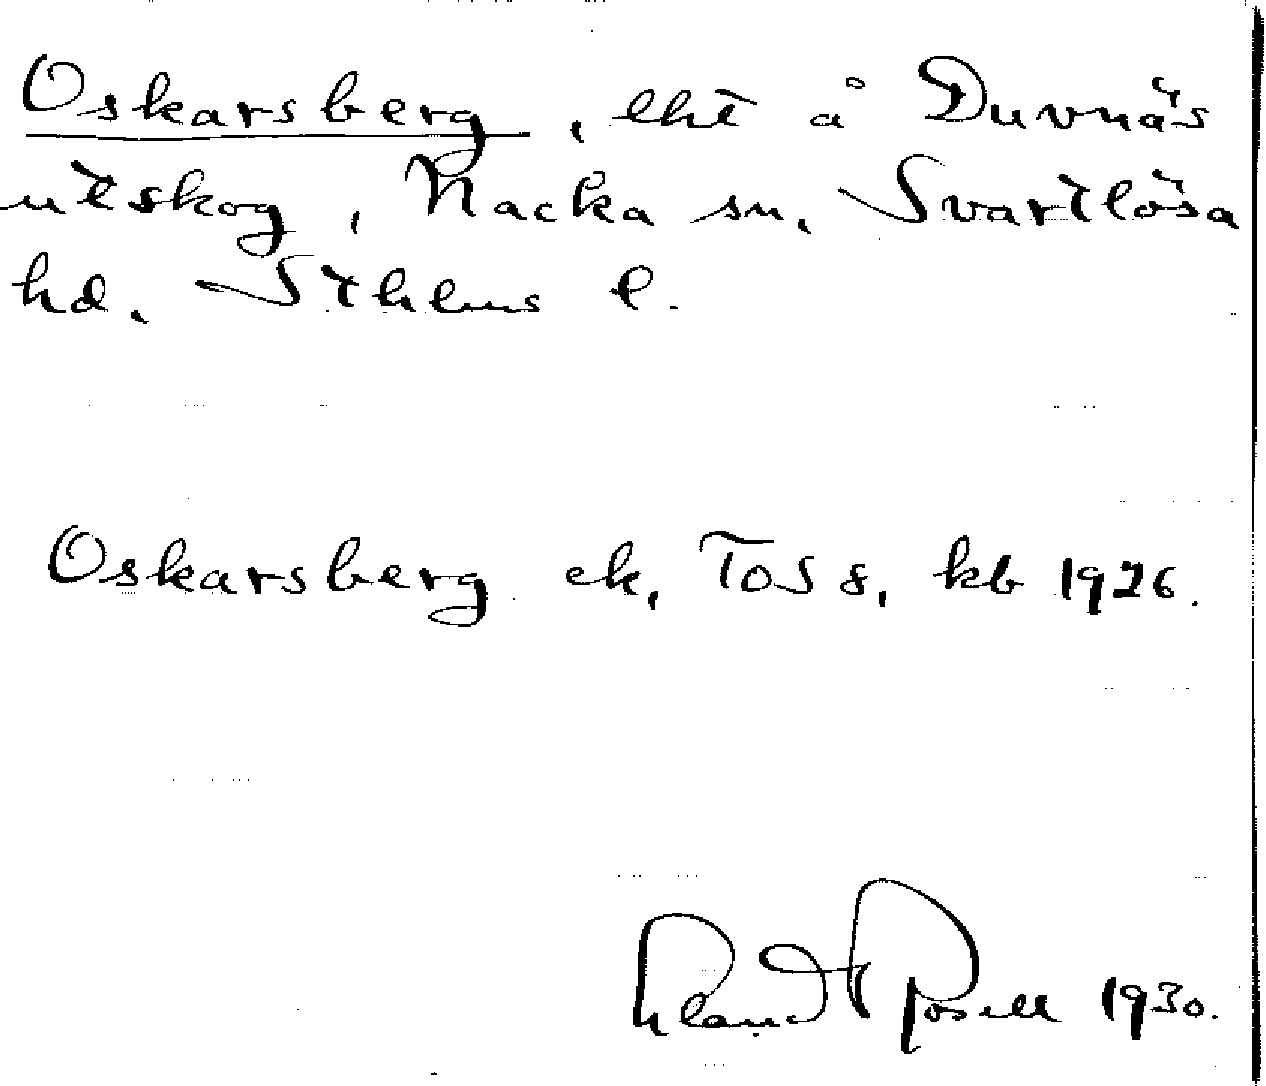 Oskarsberg, lht å Duvnäs
utskog, Nacka sn. Svartlösa
hd. Sthlms l.
Oskarsberg ek, To S 8, kb 1926.
1930.